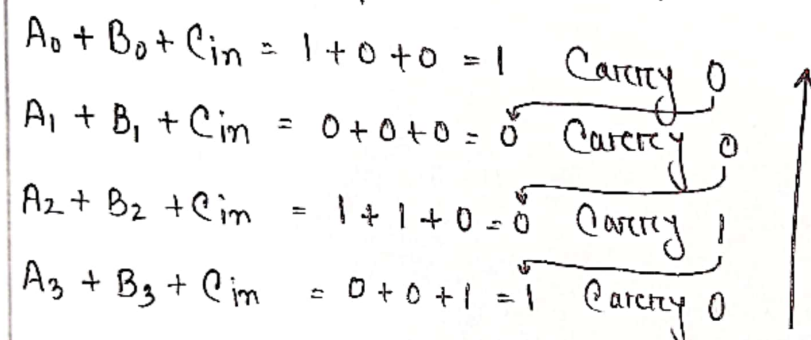 A₀ + B₀ + Cin = 1 + 0 + 0 = 1 Carry 0
A₁ + B₁ + Cin = 0 + 0 + 0 = 0 Carry 0
A₂ + B₂ + Cin = 1 + 1 + 0 = 0 Carry 1
A₃ + B₃ + Cin = 0 + 0 + 1 = 1 Carry 0